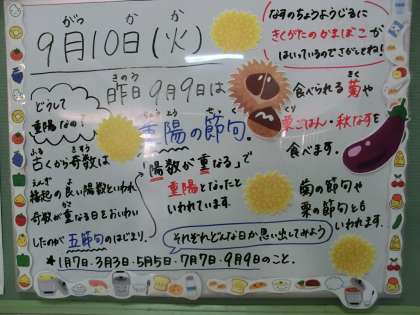 9月10日(火)
がつ か か
なすのちょうようじるに
きくがたのかまぼこが
はいっているのでさがしてね!
昨日 9月9日は
きのう
重陽の節句。
ちょう よう せっ く
食べられる菊や
栗ごはん・秋なすを
食べます。
どうして
重陽なの?
古くから奇数は
ふる きすう
縁起の良い陽数といわれ
えんぎ
奇数が重なる日をおいわい
したのが五節句のはじまり。
「陽数が重なる」で
重陽となったと
いわれています
菊の節句や
栗の節句とも
いわれます。
それぞれどんな日か思い出してみよう
*1月7日・3月3日・5月5日・7月7日・9月9日のこと。